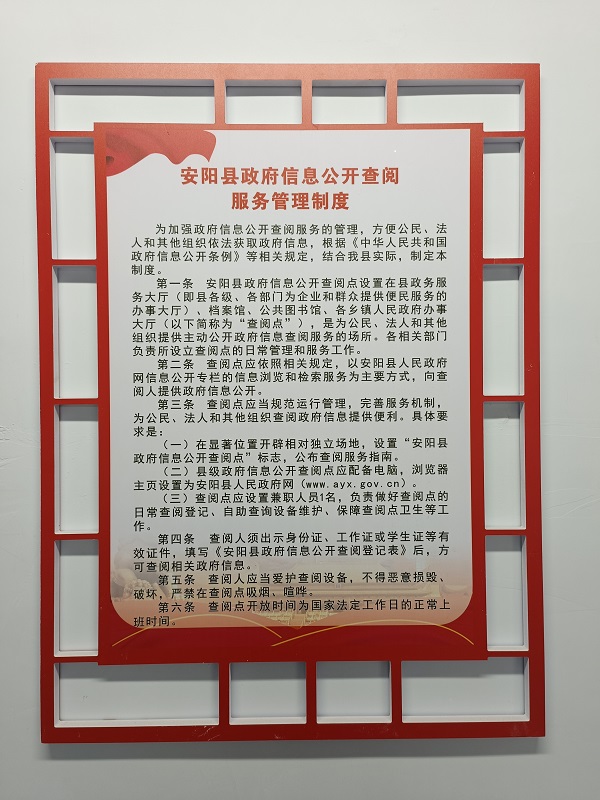 安阳县政府信息公开查阅
服务管理制度
为加强政府信息公开查阅服务的管理，方便公民、法
人和其他组织依法获取政府信息，根据《中华人民共和国
政府信息公开条例》等相关规定，结合我县实际，制定本
制度。
第一条　安阳县政府信息公开查阅点设置在县政务服
务大厅（即县各级、各部门为企业和群众提供便民服务的
办事大厅）、档案馆、公共图书馆、各乡镇人民政府办事
大厅（以下简称为“查阅点”），是为公民、法人和其他
组织提供主动公开政府信息查阅服务的场所。各相关部门
负责所设立查阅点的日常管理和服务工作。
第二条　查阅点应依照相关规定，以安阳县人民政府
网信息公开专栏的信息浏览和检索服务为主要方式，向查
阅人提供政府信息公开。
第三条　查阅点应当规范运行管理，完善服务机制，
为公民、法人和其他组织查阅政府信息提供便利。具体要
求是：
（一）在显著位置开辟相对独立场地，设置“安阳县
政府信息公开查阅点”标志，公布查阅服务指南。
（二）县级政府信息公开查阅点应配备电脑，浏览器
主页设置为安阳县人民政府网（www.ayx.gov.cn）。
（三）查阅点应设置兼职人员1名，负责做好查阅点的
日常查阅登记、自助查询设备维护、保障查阅点卫生等工
作。
第四条　查阅人须出示身份证、工作证或学生证等有
效证件，填写《安阳县政府信息公开查阅登记表》后，方
可查阅相关政府信息。
第五条　查阅人应当爱护查阅设备，不得恶意损毁、
破坏，严禁在查阅点吸烟、喧哗。
第六条　查阅点开放时间为国家法定工作日的正常上
班时间。